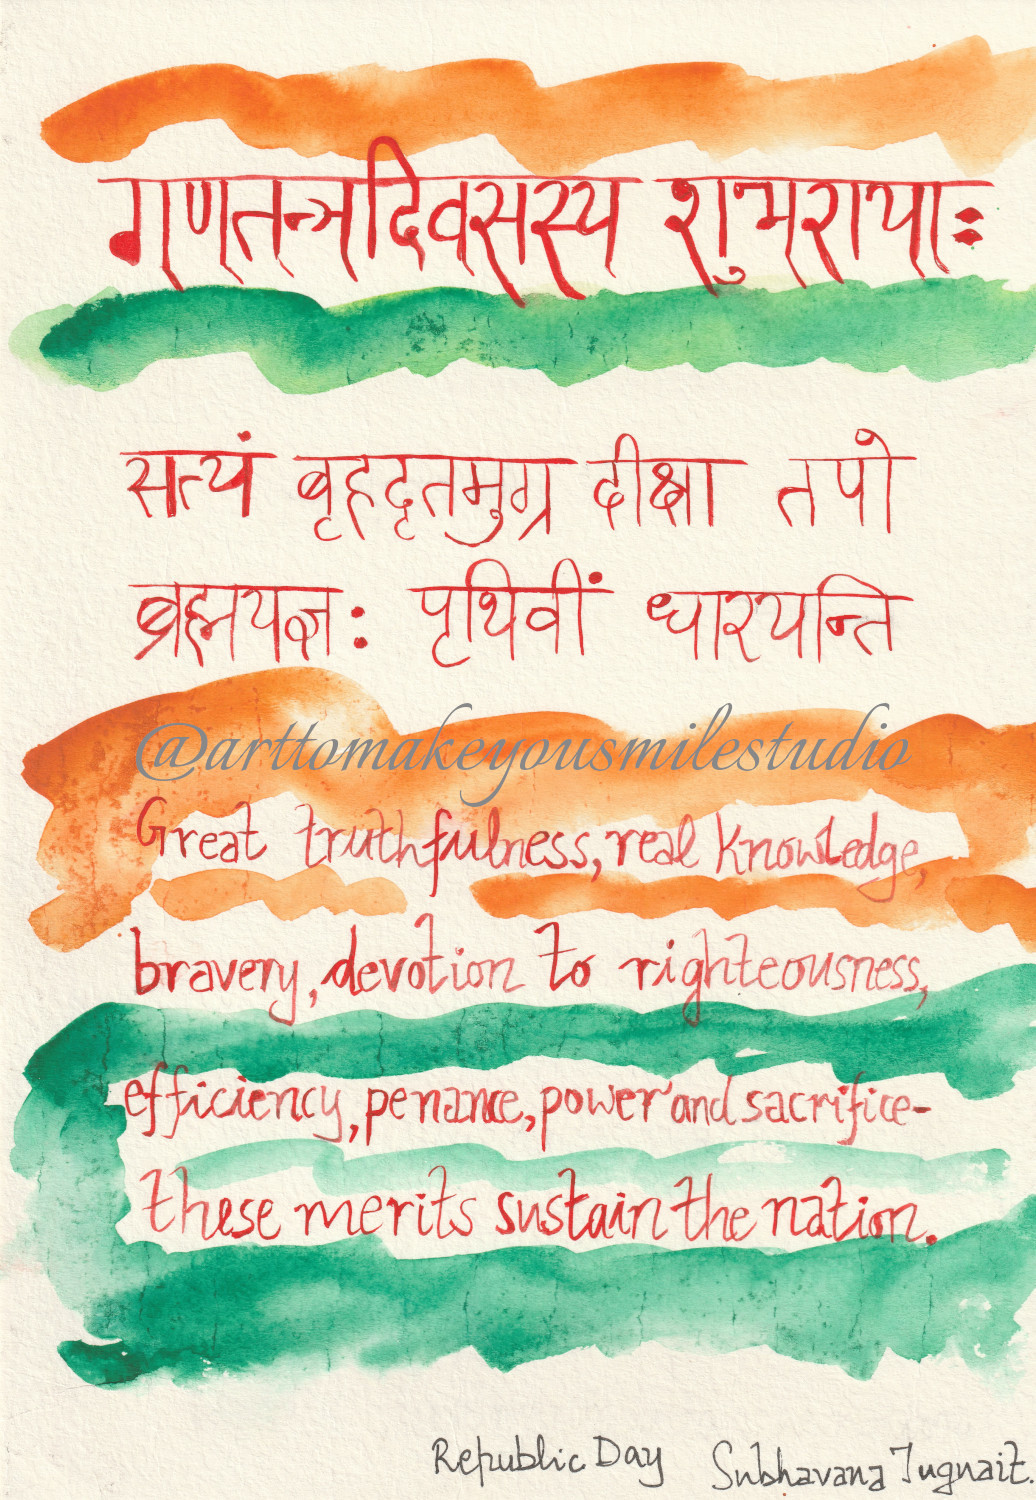 गणतन्त्रदिवसस्य शुभशयाः
सत्यं बृहदृतमुग्र दीक्षा तपो
ब्रह्मयज्ञः पृथिवीं धारयन्ति
@arttomakeyousmilestudio
Great truthfulness, real knowledge,
bravery, devotion to righteousness,
efficiency, penance, power and sacrifice-
these merits sustain the nation.
Republic Day Subhavana Jugnait.